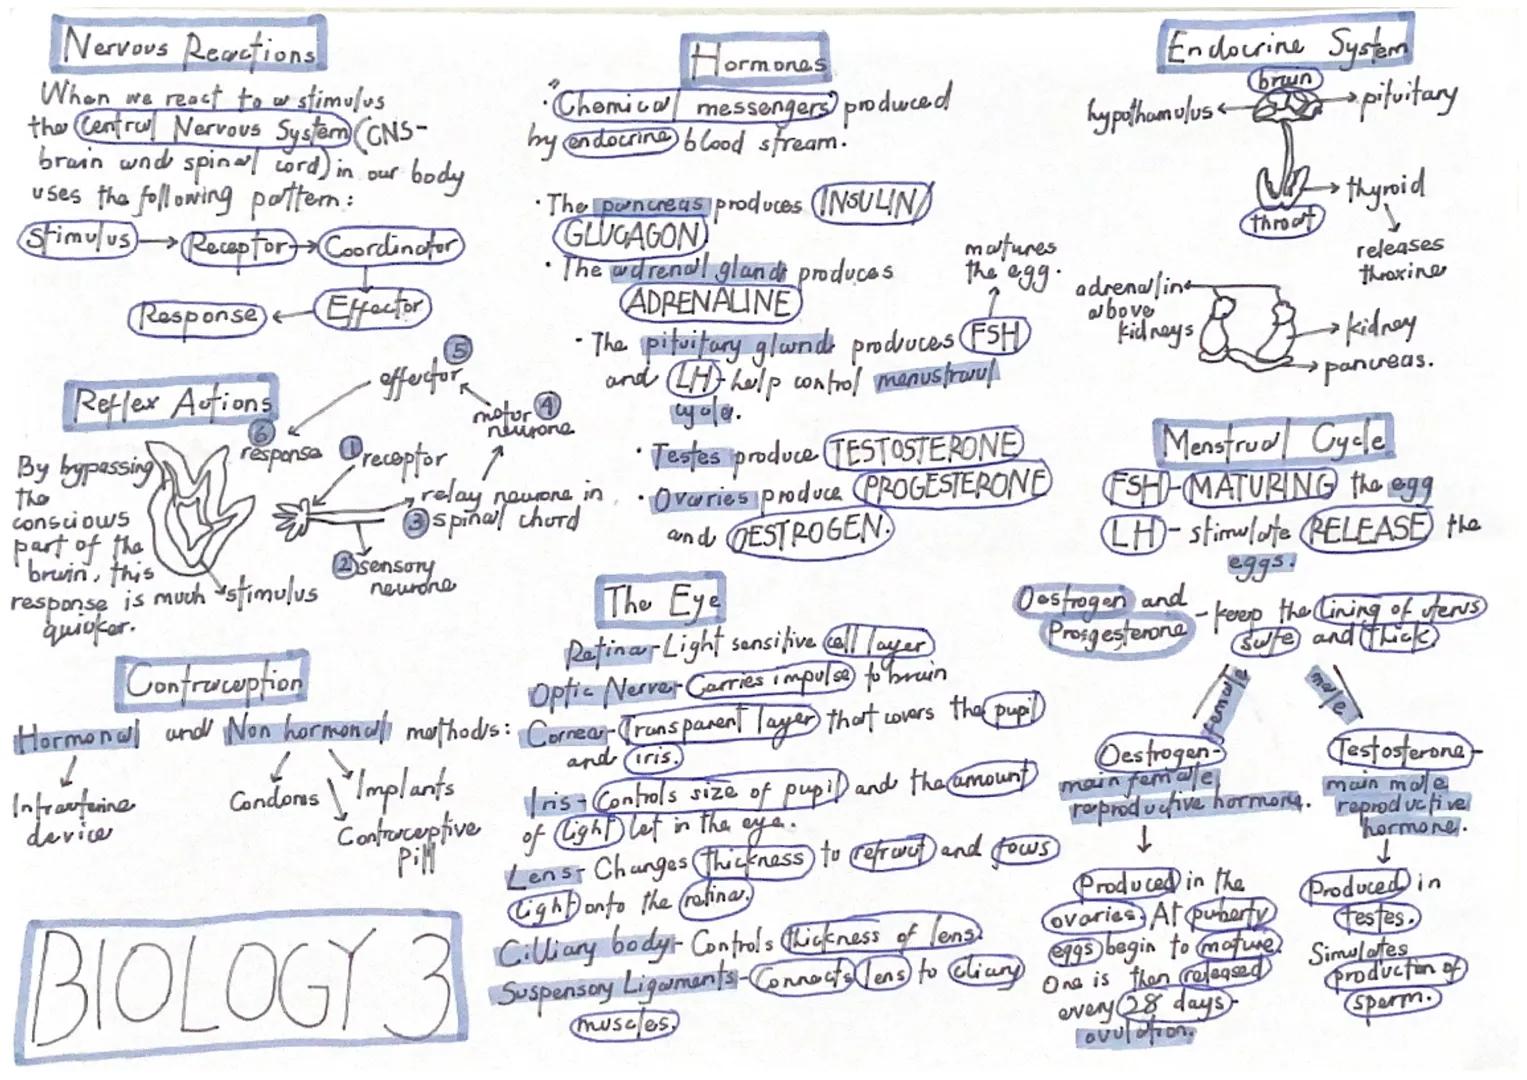 Nervous Reactions
When we react to a stimulus
the Central Nervous System (CNS-
brain and spinal cord) in our body
uses the following pattern:
Stimulus → Receptor → Coordinator
Response ← Effector
Reflex Actions
By bypassing
the
conscious
part of the
brain, this
response is much
quicker.
stimulus
⑥
response
effector ⑤
motor ④
neurone
① receptor
relay neurone in
③ spinal chord
② sensory
neurone
Contraception
Hormonal and Non hormonal methods:
Intrauterine
device
Condoms
Implants
Contraceptive
Pill
BIOLOGY 3
Hormones
· "Chemical messengers" produced
by endocrine blood stream.
· The pancreas produces INSULIN/
GLUCAGON
· The adrenal glands produces
ADRENALINE
matures
the egg.
· The pituitary glands produces FSH
and LH - help control menustraul
cycle.
· Testes produce TESTOSTERONE
· Ovaries produce PROGESTERONE
and OESTROGEN.
The Eye
Retina - Light sensitive cell layer
Optic Nerve - Carries impulse to brain
Cornea - Transparent layer that covers the pupil
and iris.
Iris - Controls size of pupil and the amount
of light let in the eye.
Lens - Changes thickness to refract and focus
light onto the retina.
Cilliary body - Controls thickness of lens.
Suspensory Ligaments - Connects lens to cliary
muscles.
Endocrine System
brain
hypothamulus
pituitary
thyroid
throat
releases
throxine
adrenaline
above
kidneys
kidney
pancreas.
Menstrual Cycle
FSH - MATURING the egg
LH - stimulate RELEASE the
eggs.
Oestrogen and
Prosgesterone - keep the lining of uterus
safe and thick
female
male
Oestrogen -
main female
reproductive hormone.
Produced in the
ovaries. At puberty
eggs begin to mature.
One is then released
every 28 days -
ovulation.
Testosterone -
main male
reproductive
hormone.
Produced in
testes.
Simulates
production of
sperm.